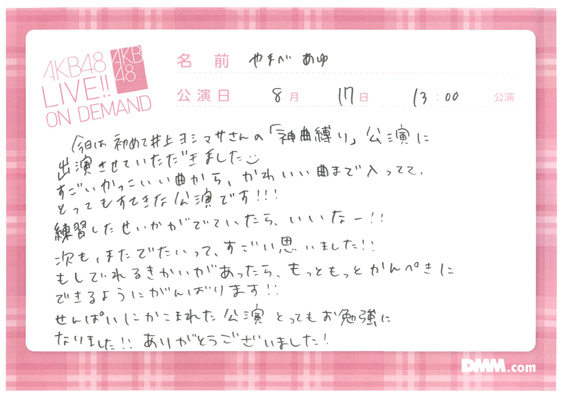 AKB48
LIVE!!
ON DEMAND
AKB
48
名 前 やまべ あゆ
公演日 8月 17日 13:00 公演
今日は初めて井上ヨシマサさんの「神曲縛り」公演に
出演させていただきました
すごいかっこいい曲から、かわいい曲まで入ってて、
とってもすてきな公演です!!!
練習したせいかがでていたら、いいなー!!
次も、またでたいって、すごい思いました!!
もしでれるきかいがあったら、もっともっとかんぺきに
できるようにがんばります!!
せんぱいにかこまれた公演とってもお勉強に
なりました!! ありがとうございました!
DMM.com